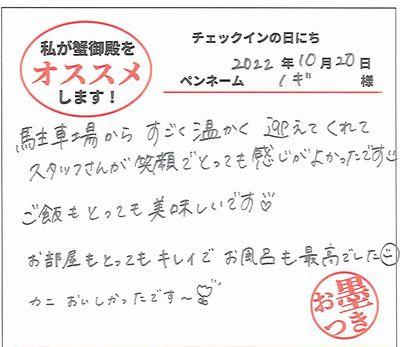 私が蟹御殿を
オススメ
します！
チェックインの日にち
2022年10月20日
ペンネーム イギ 様
駐車場から すごく温かく 迎えてくれて
スタッフさんが笑顔でとっても感じがよかったです
ご飯もとっても美味しいです♡
お部屋もとってもキレイで お風呂も最高でした
カニ おいしかったです～
お墨つき